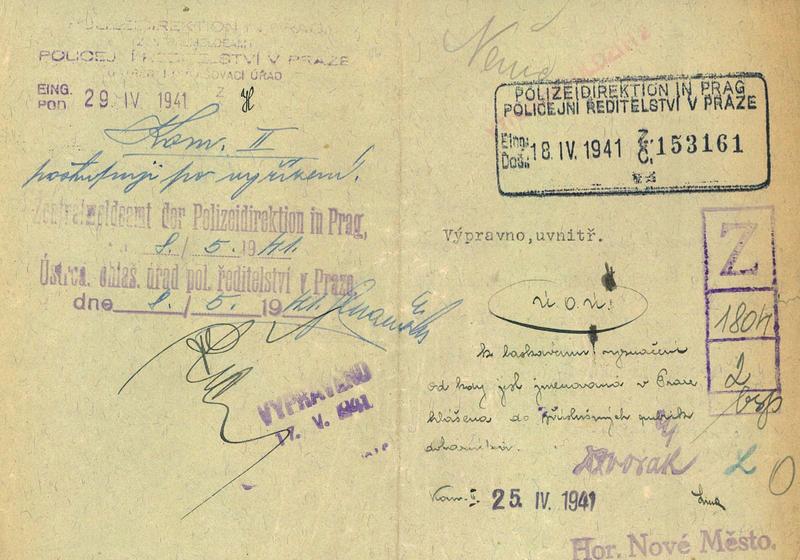 POLIZEIDIREKTION IN PRAG
POLICEJNÍ ŘEDITELSTVÍ V PRAZE
EING.
POD. 29. IV. 1941
Kom. II
postupuji po vyřízení.
Zentralmeldeamt der Polizeidirektion in Prag,
8. / 5. 1941.
Ústřed. ohlaš. úřad pol. ředitelství v Praze
dne 8. / 5. 1941
VYPRAVENO
17. V. 1941
POLIZEIDIREKTION IN PRAG
POLICEJNÍ ŘEDITELSTVÍ V PRAZE
Eing.:
Došl.: 18. IV. 1941 Z. Č. 153161
Výpravno,uvnitř.
Ú. O. Ú.
k laskavému vyznačení
od kdy jest jmenovaná v Praze
hlášena do příslušných rubrik
Dvorak
Kom. II. 25. IV. 1941
Hor. Nové Město.
Z
1804
2